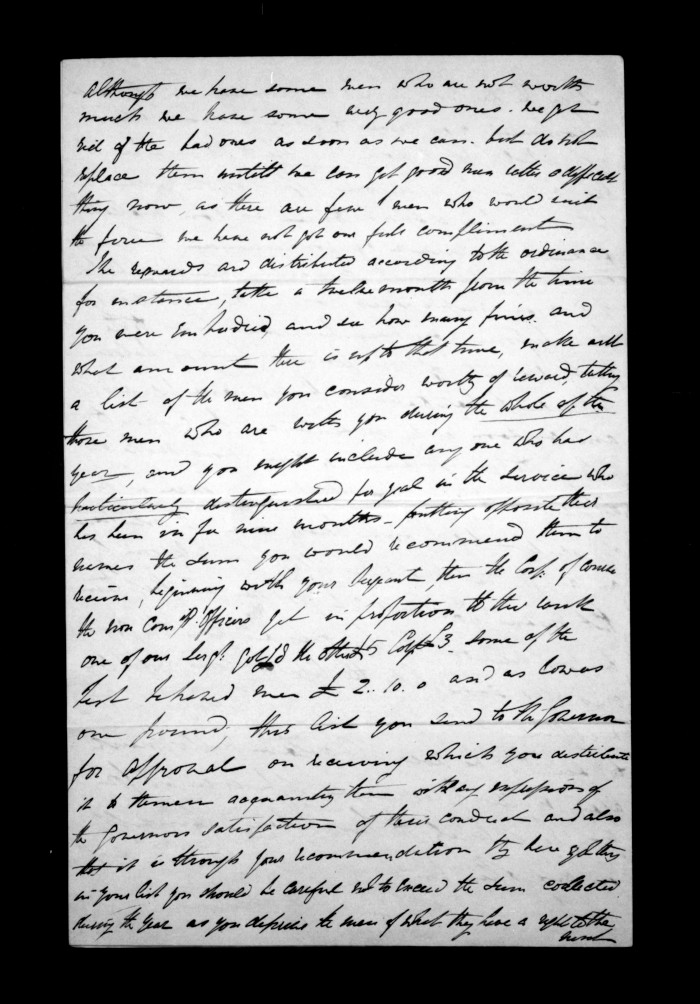 although we have some men who are not worth
much we have some very good ones. we get
rid of the bad ones as soon as we can. but do not
replace them untill we can get good men rather a difficult
thing now, as there are few men who would suit
the force we have not got our full compliment
The rewards are distributed according to the ordinance
for instance, take a twelvemonth from the time
you were Embodied, and see how many fines. and
what amount there is up to that time, make out
a list of the men you consider worthy of reward, taking
those men who are with you during the whole of the
year, and you might include any one who has
particularly distinguished for zeal in the service who
has been in for nine months - putting opposite their
names the sum you would recommend them to
receive, beginning with your Sergeant, then the Corp. of course
the non Comd. Officers get in proportion to their rank
one of our Sergt. got the other £5 Corpl £3. some of the
best behaved men £2..10.0 and as low as
one pound, this list you send to the Governor
for approval on receiving which you distribute
it to the men acquainting them with any expressions of
the Governors satisfaction of their conduct and also
that it is through your recommendation they have got this
in your list you should be careful not to exceed the sum collected
during the year as you deprive the men of what they have a right to the
next